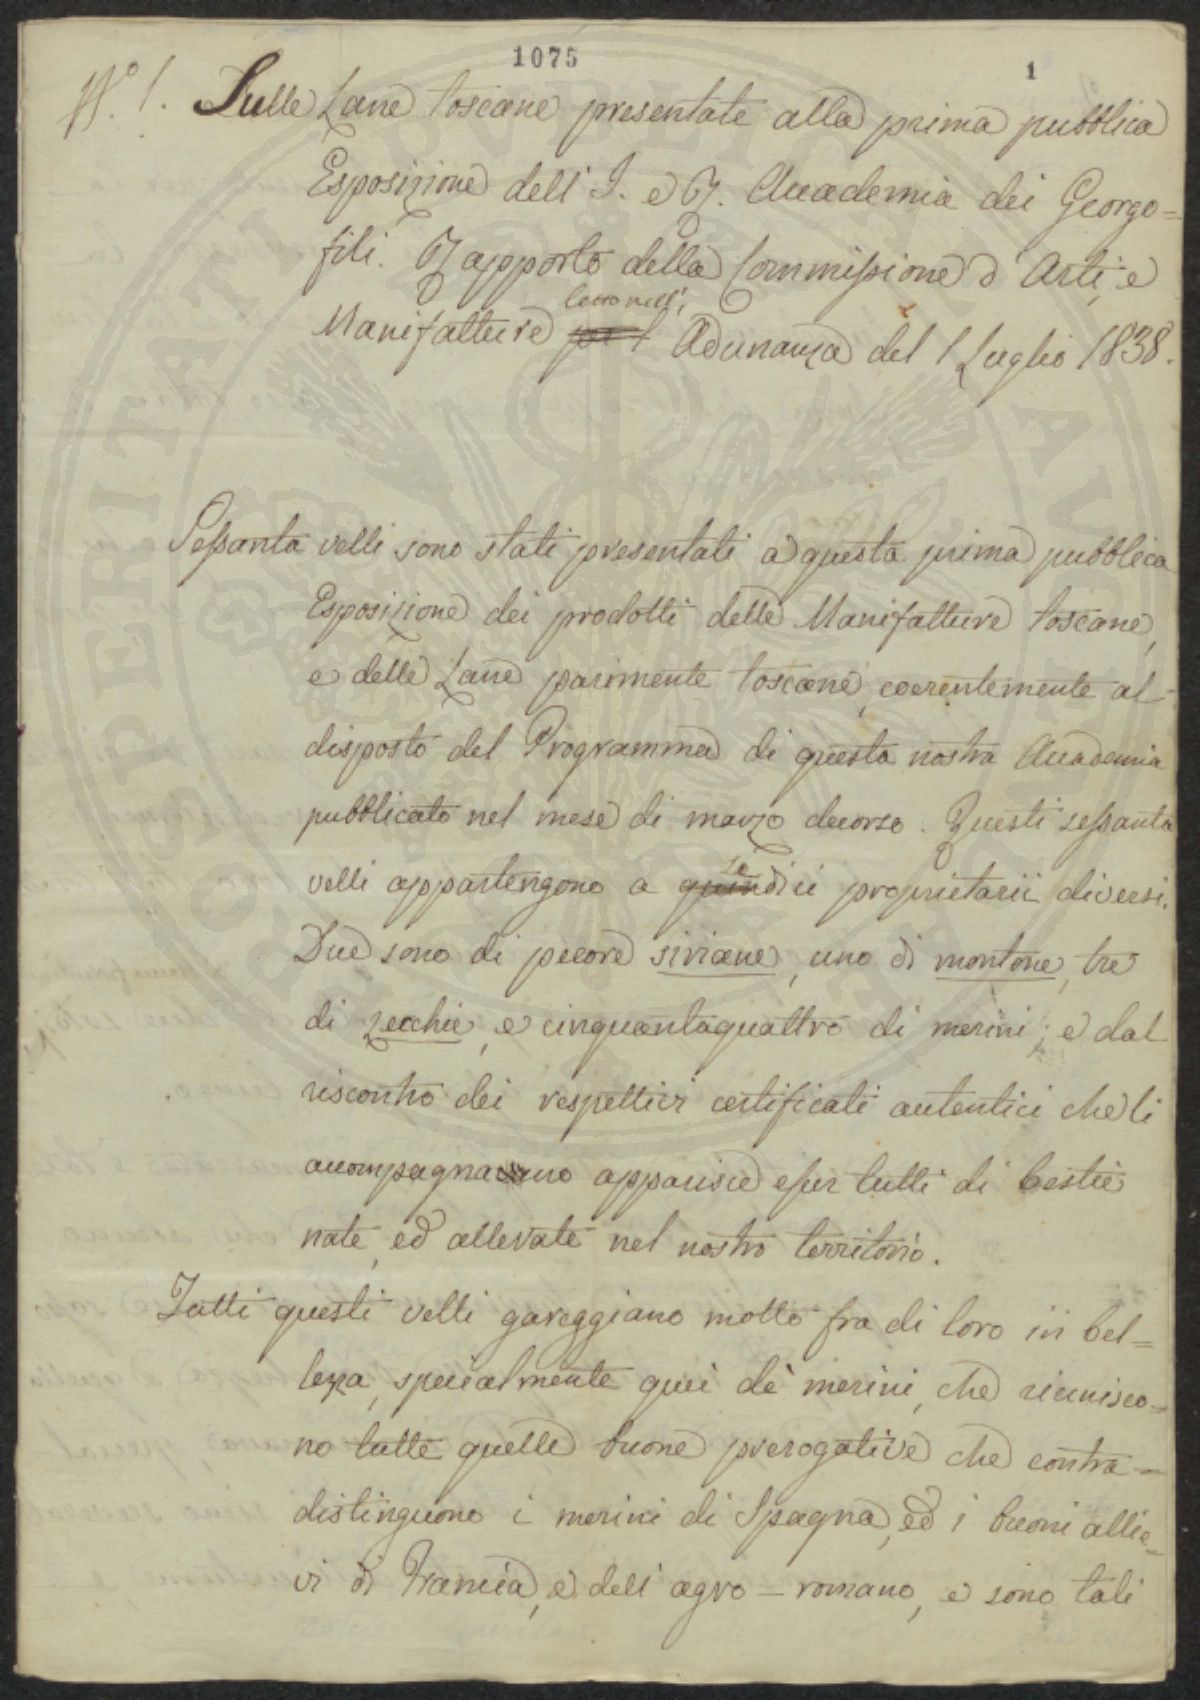 1075
1
N.° 1. Sulle Lane toscane presentate alla prima pubblica
Esposizione dell'I. e R. Accademia dei Georgo=
fili. Rapporto della Commissione d'Arti, e
letto nell'
Manifatture per l' Adunanza del 1 Luglio 1838.
Sessanta velli sono stati presentati a questa prima pubblica
Esposizione dei prodotti delle Manifatture toscane,
e delle Lane parimente toscane, coerentemente al
disposto del Programma di questa nostra Accademia
pubblicato nel mese di marzo decorso. Questi sessanta
se
velli appartengono a quindici proprietarii diversi.
Due sono di pecore siviane, uno di montone, tre
di zecchie, e cinquantaquattro di merini; e dal
riscontro dei respettivi certificati autentici che li
accompagnavano apparisce esser tutti di bestie
nate, ed allevate nel nostro territorio.
Tutti questi velli gareggiano molto fra di loro in bel=
lezza, specialmente quei de' merini, che riunisco=
no tutte quelle buone prerogative che contra=
distinguono i merini di Spagna, ed i buoni allie=
vi di Francia, e dell'agro-romano, e sono tali
SPERITATI PUBLICAE AU